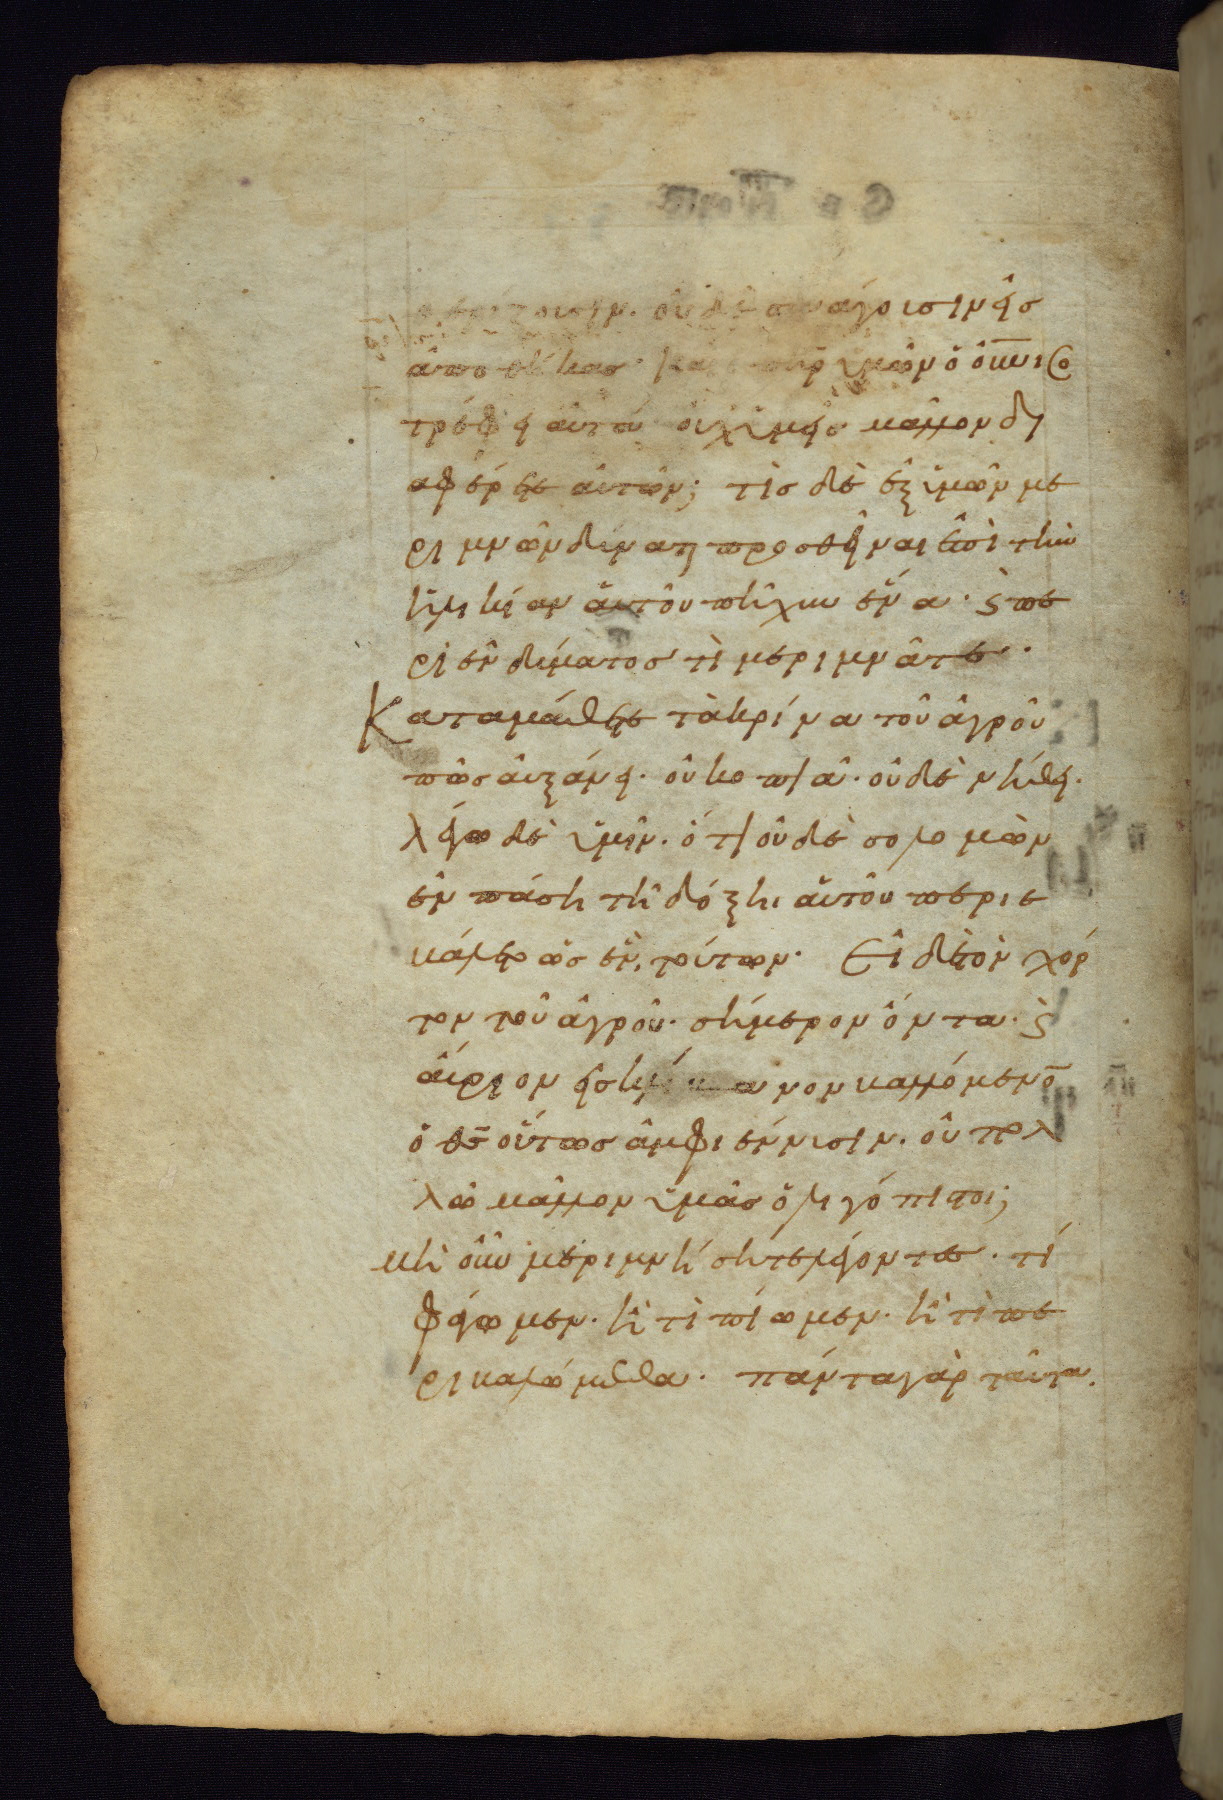 θερίζουσιν· οὐδὲ συνάγουσιν εἰς
ἀποθήκας· καὶ ὁ πηρ ὑμῶν ὁ οὐνιος
τρέφει αὐτά· οὐχ ὑμεῖς μᾶλλον δι
αφέρετε αὐτῶν; τίς δὲ ἐξ ὑμῶν με
ριμνῶν δύναται προσθεῖναι ἐπὶ τὴν
ἡλικίαν αὐτοῦ πῆχυν ἕνα· ϗ πε
ρὶ ἐνδύματος τί μεριμνᾶτε·
Καταμάθετε τὰ κρίνα τοῦ ἀγροῦ
πῶς αὐξάνει· οὐ κοπιᾷ· οὐδὲ νήθει·
λέγω δὲ ὑμῖν· ὅτι οὐδὲ σολομὼν
ἐν πάσῃ τῇ δόξῃ αὐτοῦ περιε
βάλετο ὡς ἓν τούτων· Εἰ δὲ τὸν χόρ
τον τοῦ ἀγροῦ· σήμερον ὄντα· ϗ
αὔριον εἰς κλίβανον βαλλόμενο
ὁ θς οὕτως ἀμφιέννυσιν· οὐ πολ
λῶ μᾶλλον ὑμᾶς ὀλιγόπιστοι;
μὴ οὖν μεριμνήσητε λέγοντες· τί
φάγωμεν· ἢ τί πίωμεν· ἢ τί πε
ριβαλώμεθα· πάντα γὰρ ταῦτα·